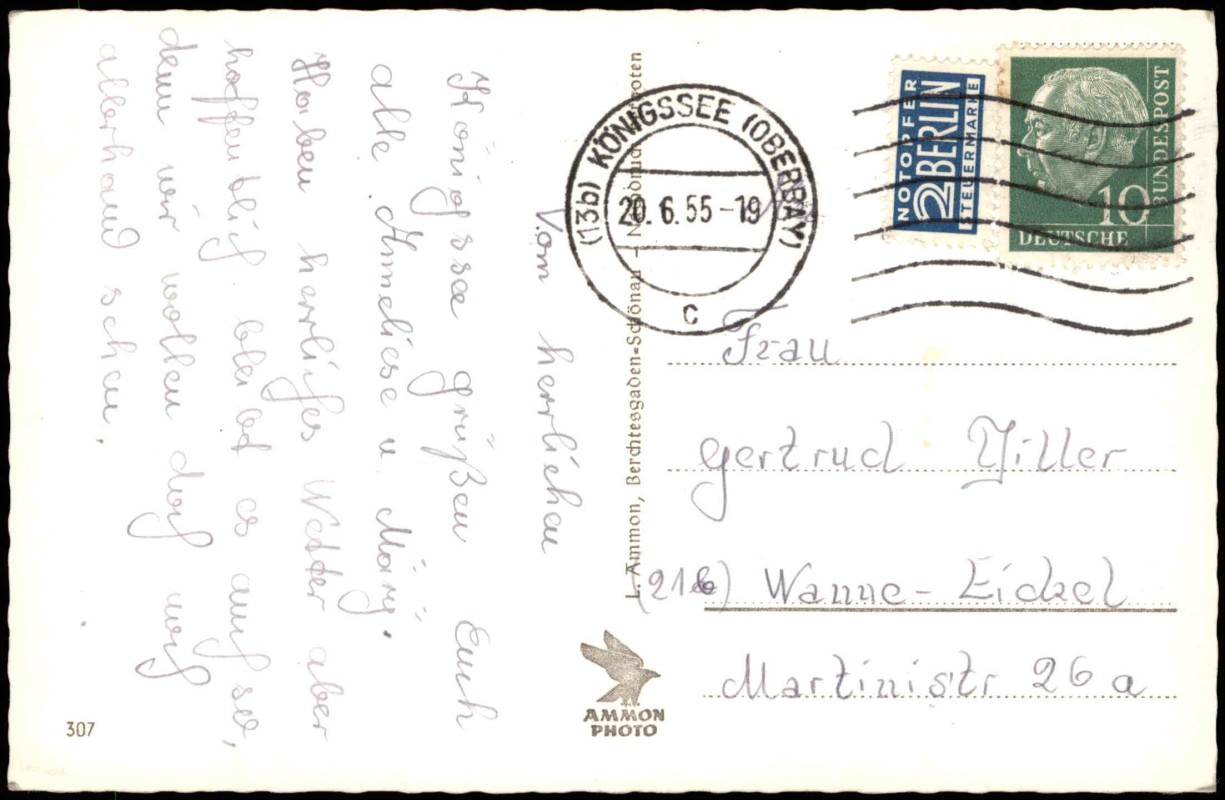 Vom herrlichen
Königssee grüßen Euch
alle Anneliese u.
Haben herrliches Wetter aber
hoffentlich bleibt es auch so,
denn wir wollen doch noch
allerhand sehen.
307
L. Ammon, Berchtesgaden-Schönau
AMMON
PHOTO
(13b) KÖNIGSSEE (OBERBAY)
20.6.55-19
c
NOTOPFER
2 BERLIN
STEUERMARKE
10
DEUTSCHE
BUNDESPOST
Frau
Gertrud
(21b) Wanne-Eickel
Martinistr 26a